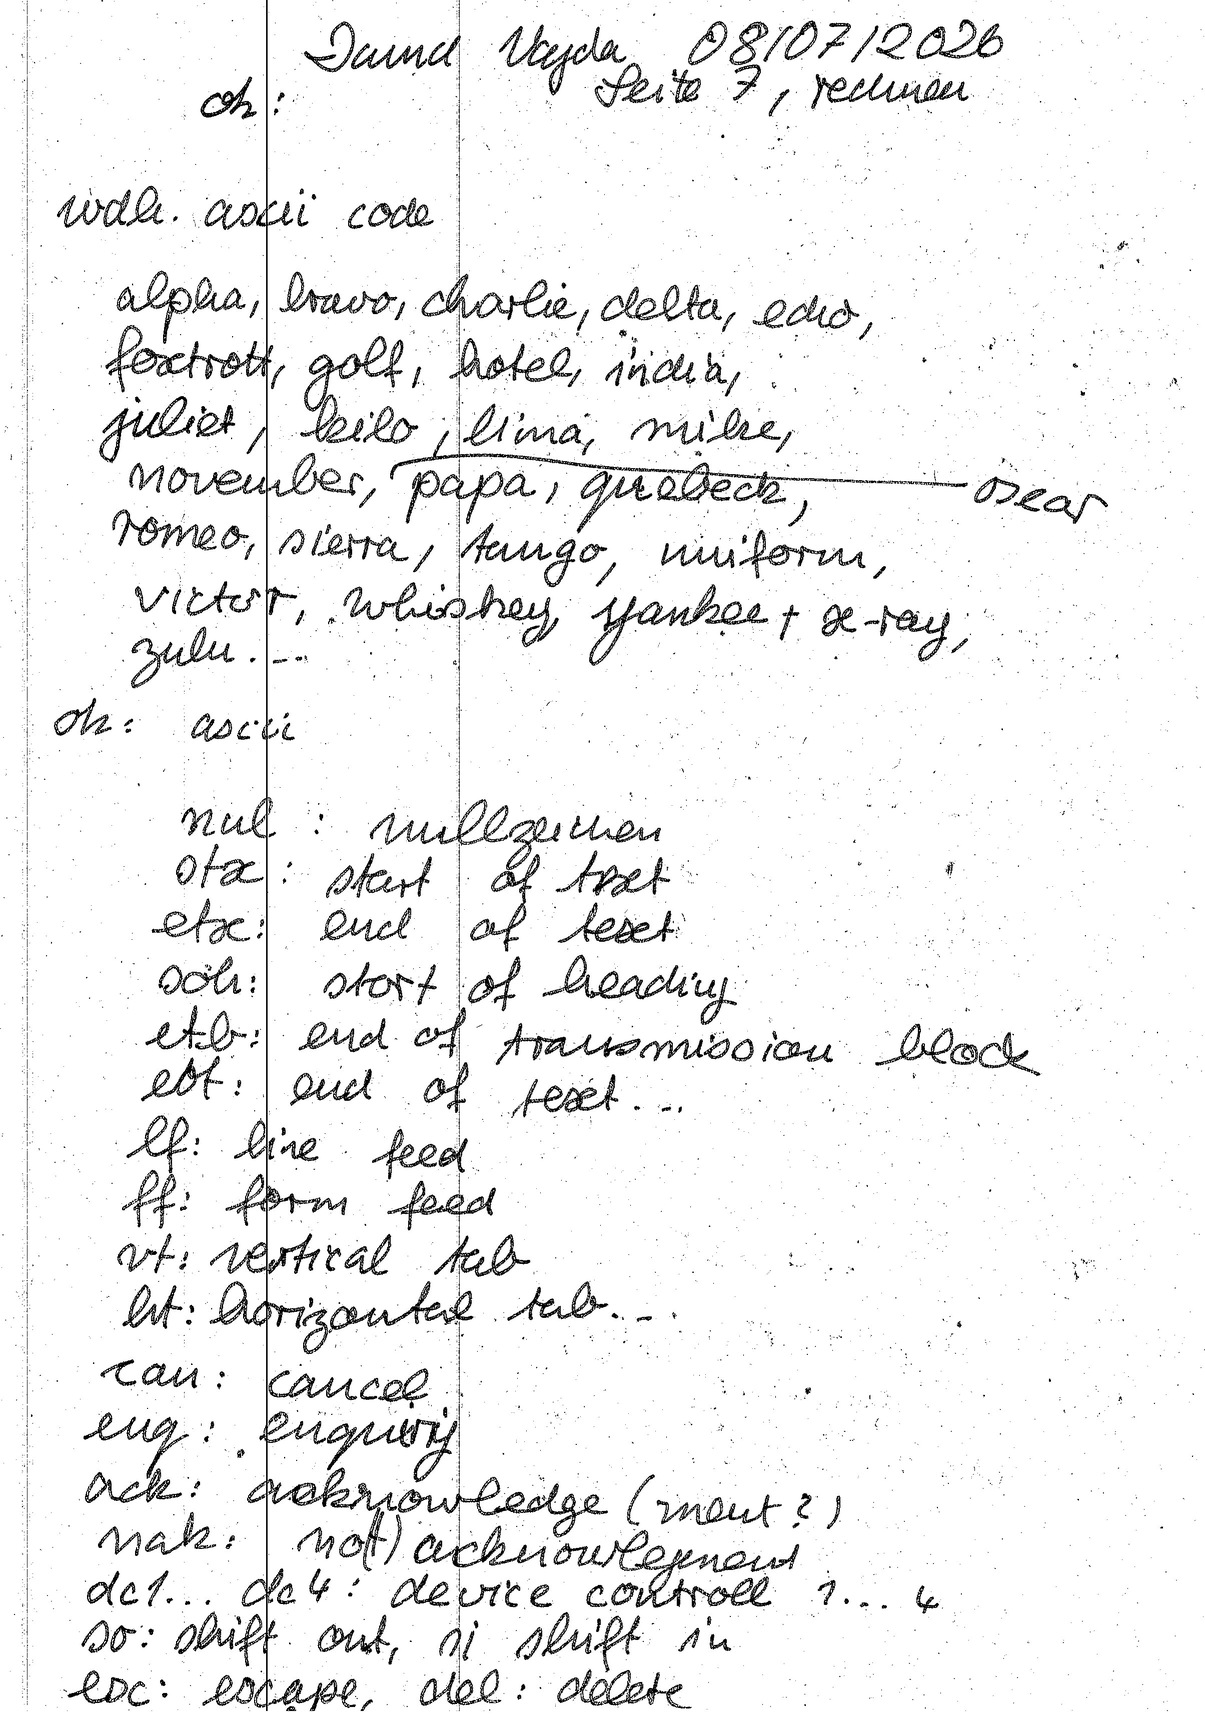 David Vajda 08/07/2026
ok: Seite 7, rechnen
wdh. ascii code
alpha, bravo, charlie, delta, echo,
foxtrott, golf, hotel, india,
juliet, kilo, lima, mike,
november, papa, quebeck, oscar
romeo, sierra, tango, uniform,
victor, whiskey, yankee + x-ray,
zulu....
ok: ascii
nul : nullzeichen
stx: start of text
etx: end of text
soh: start of heading
etb: end of transmission block
eot: end of text...
lf: line feed
ff: form feed
vt: vertical tab
ht: horizontal tab...
can: cancel
enq: enquiry
ack: acknowledge (ment?)
nak: no(t) acknowlegement
dc1... dc4: device controll 1... 4
so: shift out, si shift in
esc: escape, del: delete